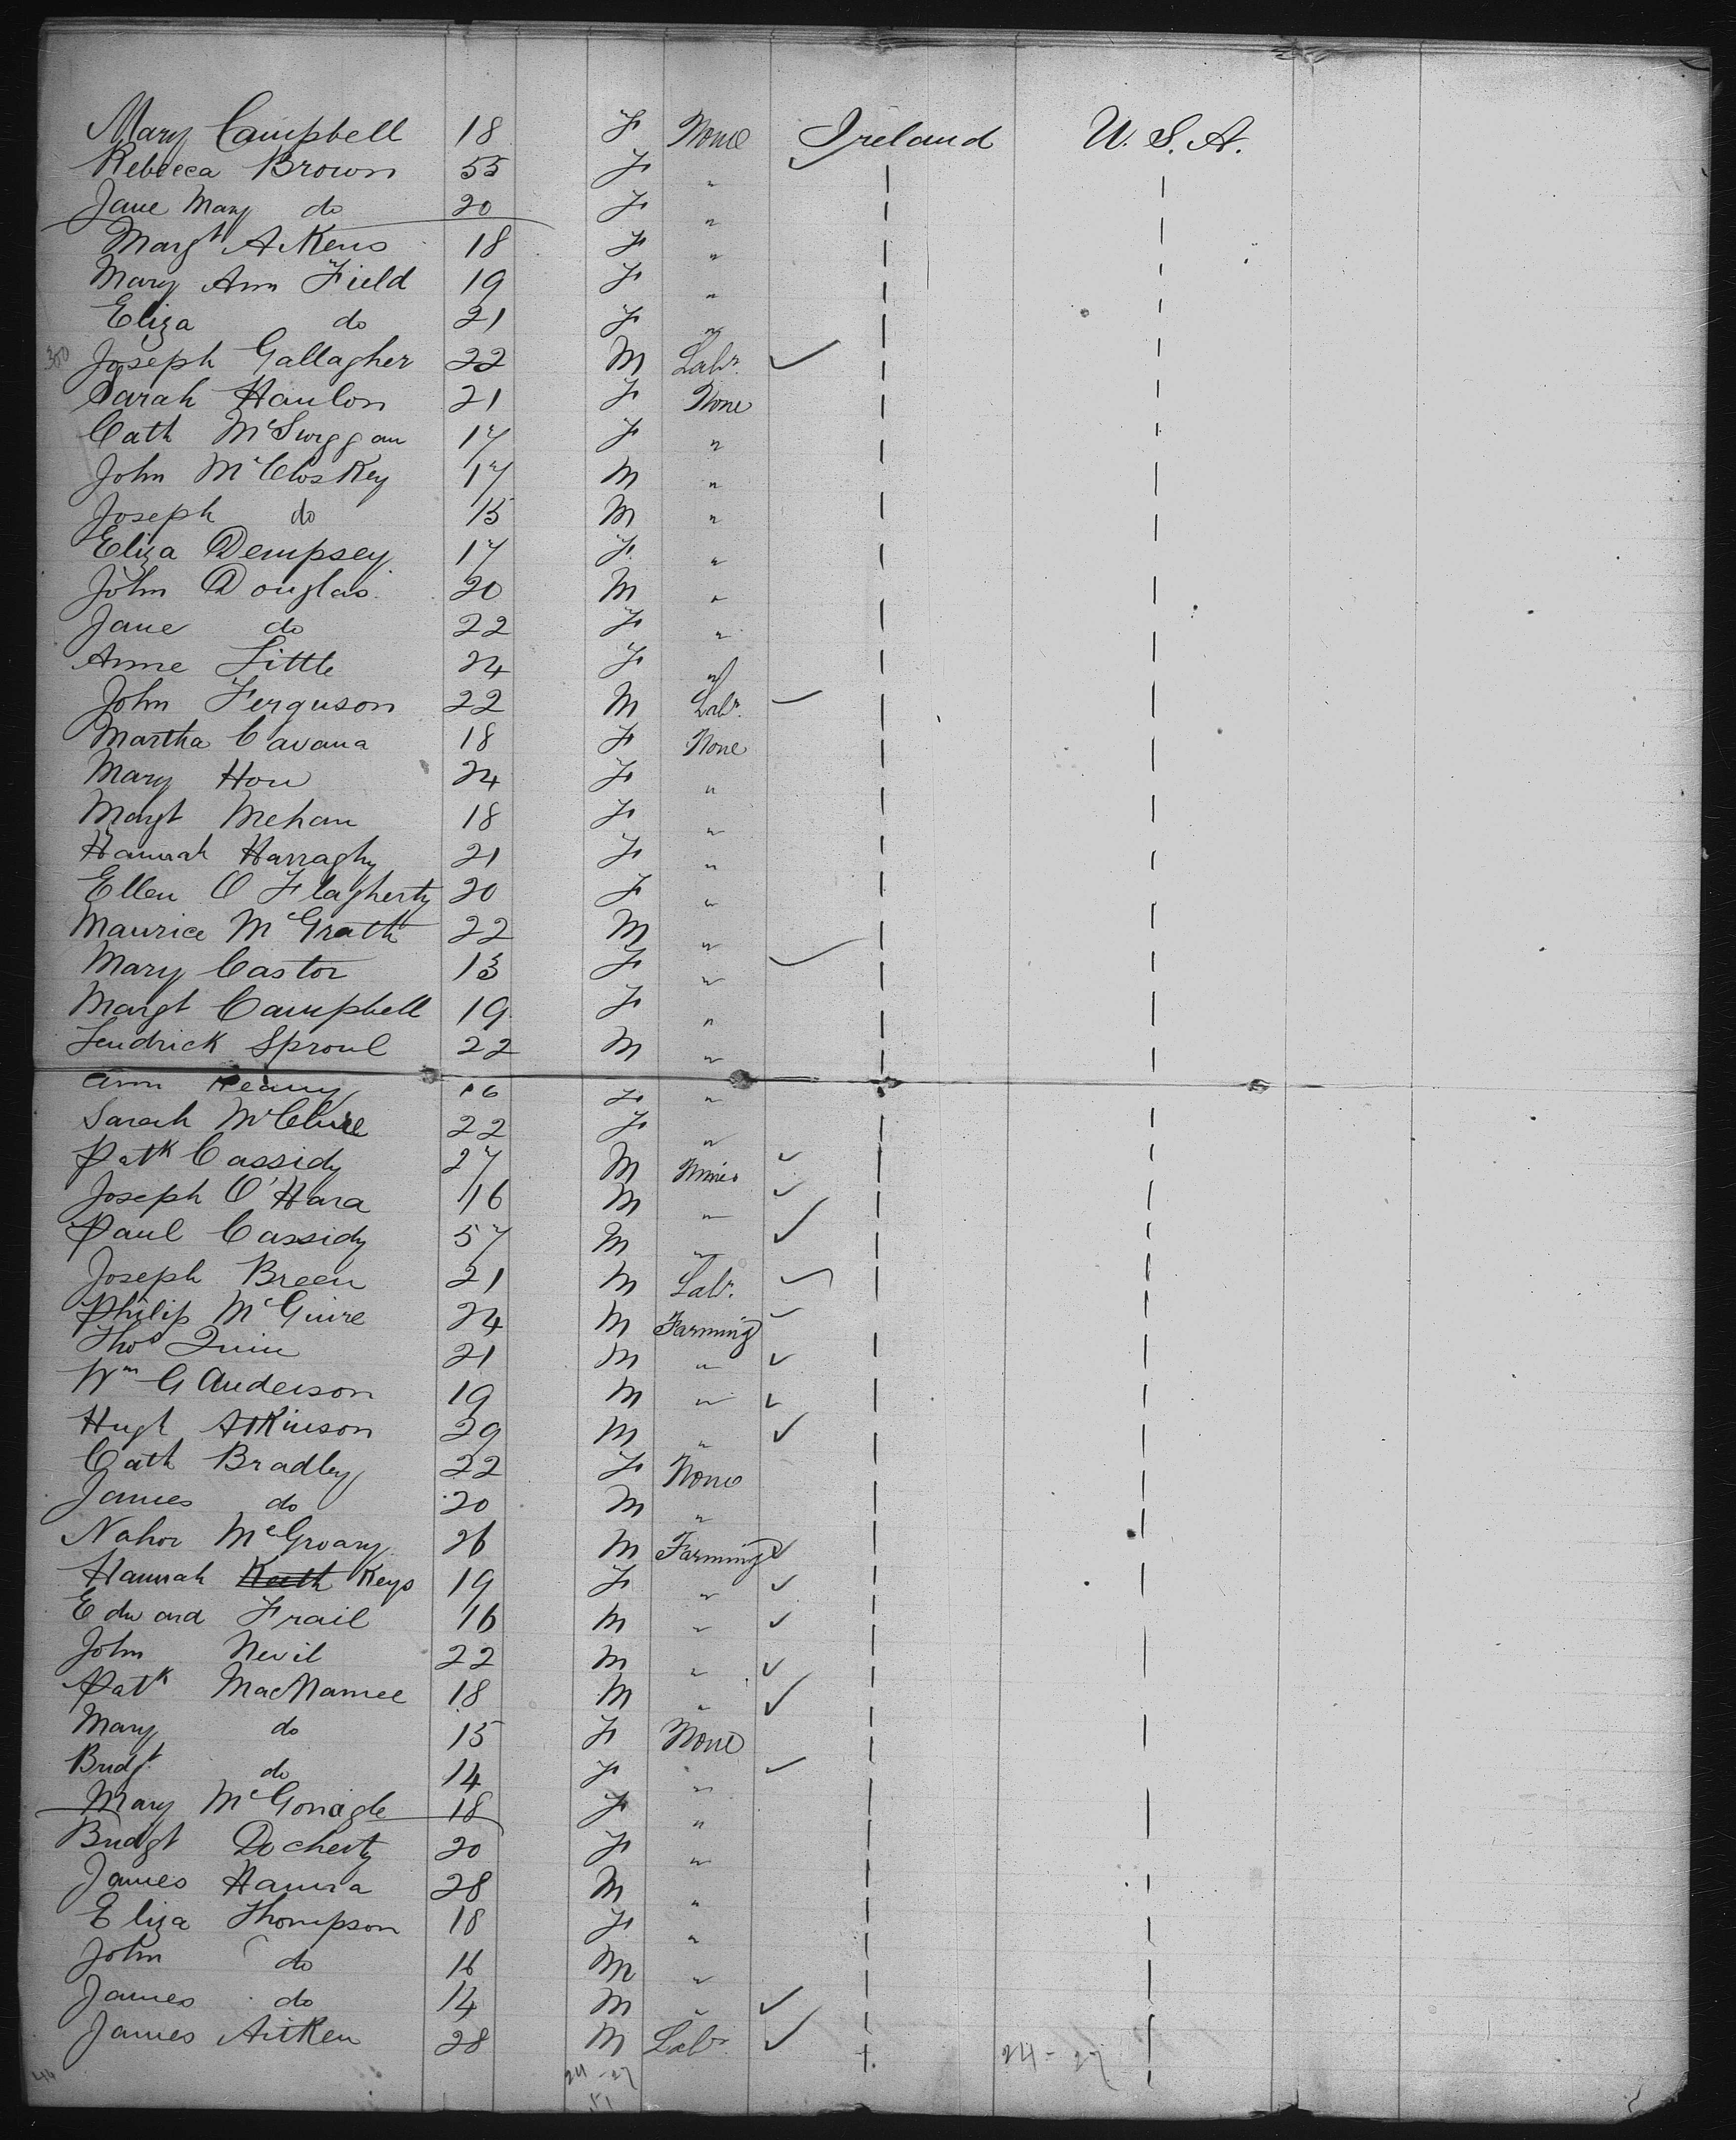 Mary Campbell 18 F None Ireland U.S.A.
Rebecca Brown 55 F "
Jane Mary do 20 F "
Margt Aikens 18 F "
Mary Ann Field 19 F "
Eliza do 21 F "
300 Joseph Gallagher 22 M Labr.
Sarah Hanlon 21 F None
Cath McSwggan 17 F "
John McCloskey 17 M "
Joseph do 15 M "
Eliza Dempsey 17 F "
John Douglas 20 M "
Jane do 22 F "
Anne Little 24 F "
John Ferguson 22 M Labr.
Martha Cavana 18 F None
Mary How 24 F "
Margt Mehan 18 F "
Hannah Harraghy 21 F "
Ellen O Flagherty 20 F "
Maurice McGrath 22 M "
Mary Castor 13 F "
Margt Campbell 19 F "
Fendrick Sproul 22 M "
Ann 16 F "
Sarah McClure 22 F "
Patk Cassidy 27 M Miner
Joseph O'Hara 16 M "
Paul Cassidy 57 M "
Joseph Breen 21 M Labr.
Philip McGuire 24 M Farming
Thos Quin 21 M "
Wm G Anderson 19 M "
Hugh Atkinson 29 M "
Cath Bradley 22 F None
James do 20 M "
Nahor McGroary 26 M Farming
Hannah Keys 19 F "
Edward Frail 16 M "
John Nevil 22 M "
Patk MacNamee 18 M "
Mary do 15 F None
Bridgt do 14 F "
Mary McGonagle 18 F "
Bridgt Docherty 20 F "
James Hanna 28 M "
Eliza Thompson 18 F "
John do 16 M "
James do 14 M "
James Aitken 28 M Labr
24 - 27 24 - 27
51